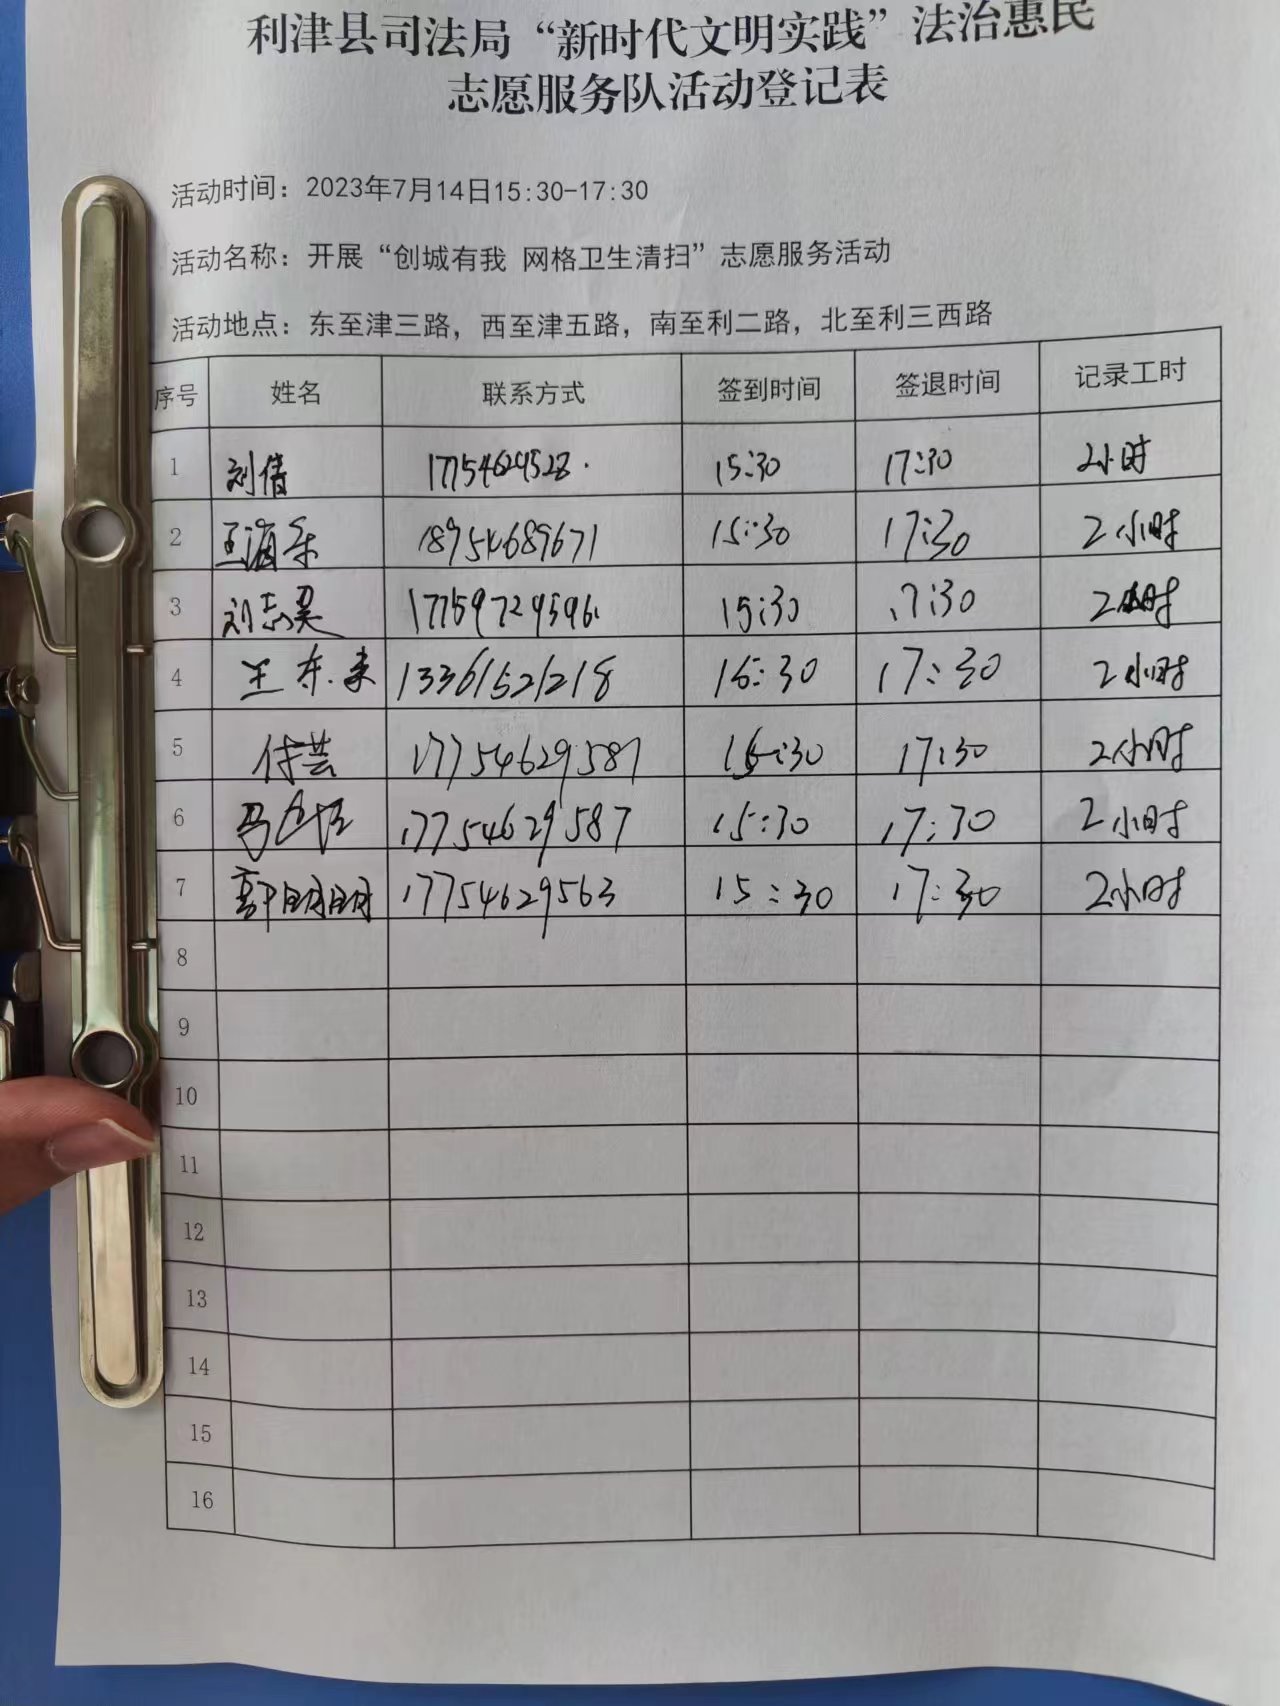 利津县司法局“新时代文明实践”法治惠民
志愿服务队活动登记表
活动时间：2023年7月14日15:30-17:30
活动名称：开展“创城有我 网格卫生清扫”志愿服务活动
活动地点：东至津三路，西至津五路，南至利二路，北至利三西路
序号 姓名 联系方式 签到时间 签退时间 记录工时
1 刘倩 17754629528 15:30 17:30 2小时
2 王海乐 18954689671 15:30 17:30 2小时
3 刘志昊 17759729596 15:30 17:30 2小时
4 王东来 13361521218 15:30 17:30 2小时
5 付芸 17754629587 15:30 17:30 2小时
6 马 17754629587 15:30 17:30 2小时
7 郭明明 17754629563 15:30 17:30 2小时
8
9
10
11
12
13
14
15
16